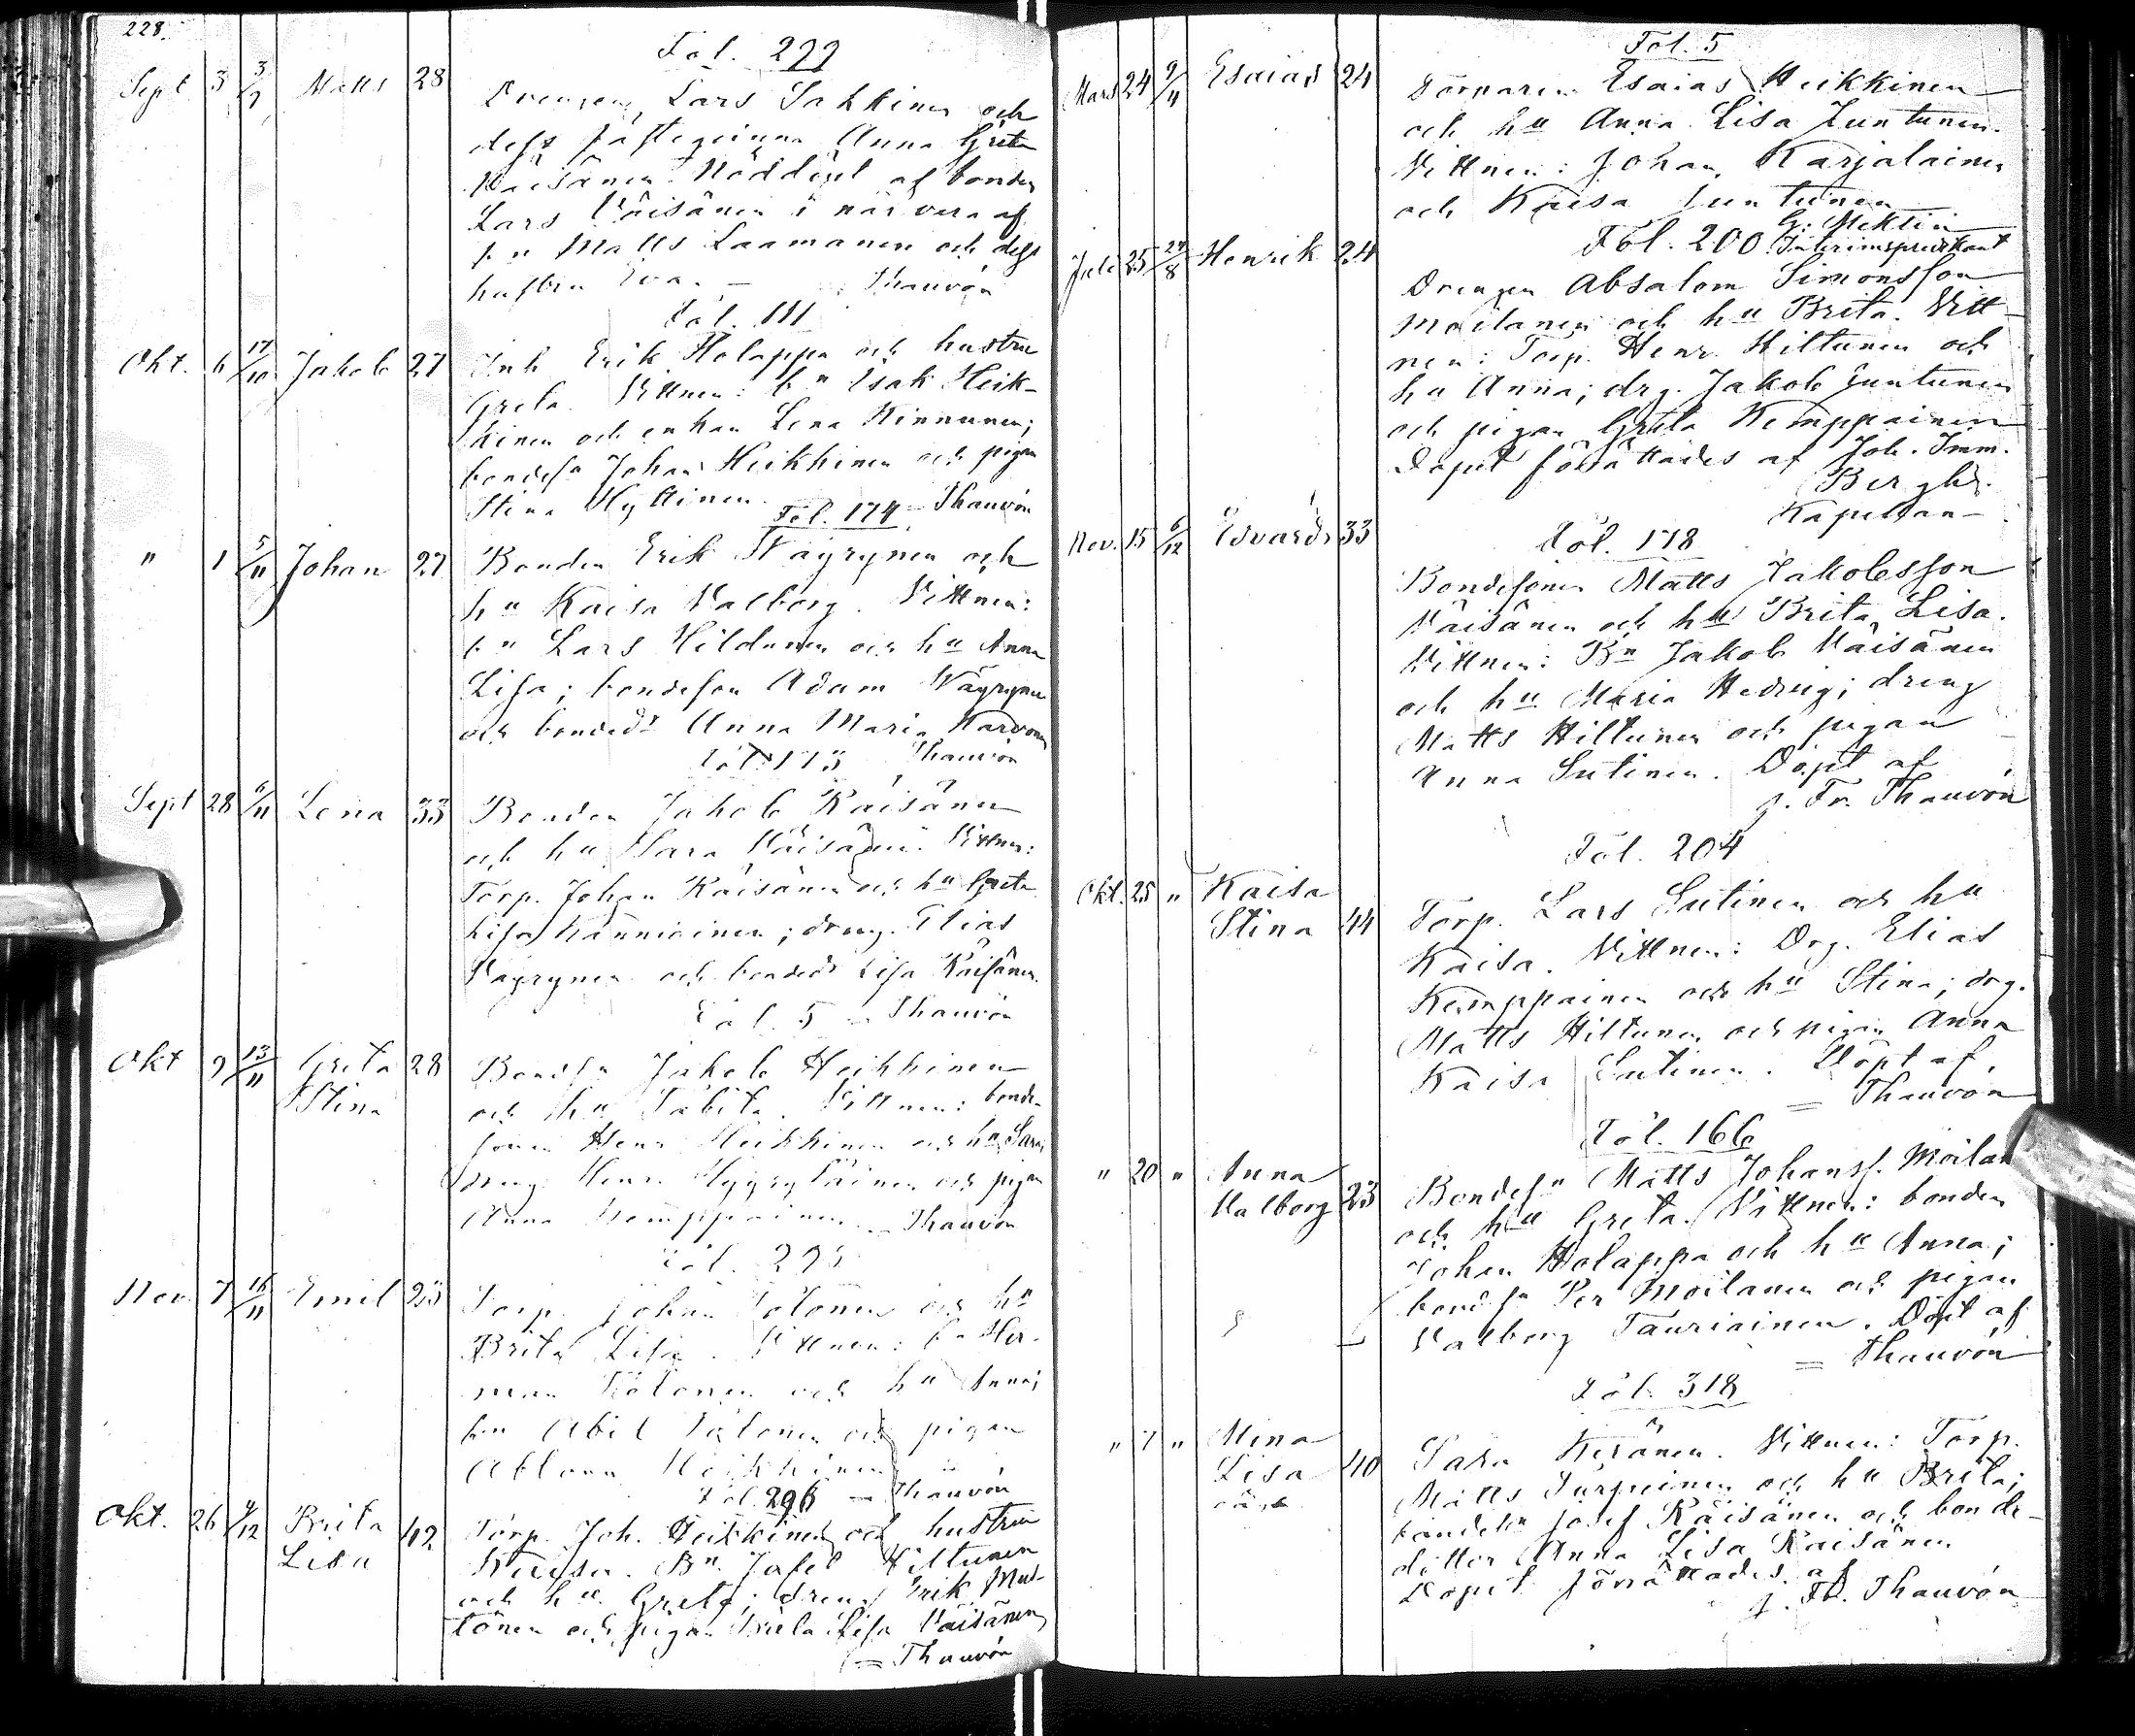 228.
Fol. 299
Sept 3 3/9 Matts 28
Drengen Lars Sakkinen och
dess fästeqvinna Anna Greta
Väisänen. Nöddöpt af bonden
Lars Väisänen i närvaro af
bn Matts Laamanen och dess
hustru Eva. — Thauvón
Fol. 111
Okt. 6 17/10 Jakob 27
Inh Erik Holappa och hustru
Greta. Vittnen: bn Isak Heik-
kinen och enkan Lena Kinnunen;
bondes. Johan Heikkinen och pigan
Stina Hyttinen. — Thauvón
Fol. 174
" 1 5/11 Johan 27
Bonden Erik Väyrynen och
hu Kaisa Valborg. Vittnen:
bn Lars Hildunen och hu Anna
Lisa; bondeson Adam Väyrynen
och bondedr Anna Maria Karvonen
Fol. 173 Thauvón
Sept 28 6/11 Lena 33
Bonden Jakob Räisänen
och hu Sara Väisänen. Vittnen:
Torp. Johan Räisänen och hu Greta
Lisa Kanniainen; dreng. Elias
Väyrynen och bondedr Lisa Räisänen.
Fol. 5 — Thauvón
Okt 9 13/11 Greta Stina 28
Bondsn Jakob Heikkinen
och hu Tabita. Vittnen: bonde-
sonen Henr Heikkinen och hu Sara;
dreng Henr. Hyyryläinen och pigan
Anna Kemppainen — Thauvón
Fol. 295
Nov 7 16/11 Emil 23
Torp. Johan Tolonen och hu
Brita Lisa. Vittnen: bn Her-
man Tolonen och hu Anna;
bn Abel Tolonen och pigan
Heikkinen
Fol. 296 — Thauvón
Okt. 26 4/12 Brita Lisa 42
Torp. Joh. Heikkinen och hustru
Kaisa. Bn. Jafet Hiltunen
och hu Greta; dreng Erik Mus-
tonen och pigan Brita Lisa Väisänen
= Thauvón
Fol. 5
Mars 24 9/4 Esaias 24
Torparen Esaias Heikkinen
och hu Anna Lisa Juntunen.
Vittnen: Johan Karjalainen
och Kaisa Juntunen
G: Mektin
Fol. 200 Interimspredikant
Juli 25 24/8 Henrik 24
Drengen Absalom Simonsson
Moilanen och hu Brita. Vitt-
nen: Torp. Henr. Hiltunen och
hu Anna; drg. Jakob Juntunen
och pigan Greta Kemppainen
Dopet förrättades af Joh. Imm.
Bergh.
Kapellan
Fol. 178
Nov. 15 6/12 Edvard 33
Bondesonen Matts Jakobsson
Väisänen och hu Brita Lisa.
Vittnen: Bn Jakob Väisänen
och hu Maria Hedvig; dreng
Matts Hiltunen och pigan
Anna Sutinen. Döpt af
J. Fr. Thauvón
Fol. 204
Okt. 25 " Kaisa Stina 44
Torp. Lars Sutinen och hu
Kaisa. Vittnen: Drg. Elias
Kemppainen och hu Stina; drg.
Matts Hiltunen och pigan Anna
Kaisa Sutinen. Döpt af
= Thauvón
Fol. 166
" 20 " Anna Valborg 23
Bondesn Matts Johanss. Moilan
och hu Greta. Vittnen: bonden
Johan Holappa och hu Anna;
bondsn Per Moilanen och pigan
Valborg Tauriainen. Döpt af
= Thauvón
Fol. 318
" 7 " Mina Lisa oäkt 40
Sara Keränen. Vittnen: Torp.
Matts Turpeinen och hu Brita;
bonden Josef Räisänen och bonde-
dotter Anna Lisa Räisänen
Dopet förrättades af
J. Fr. Thauvón